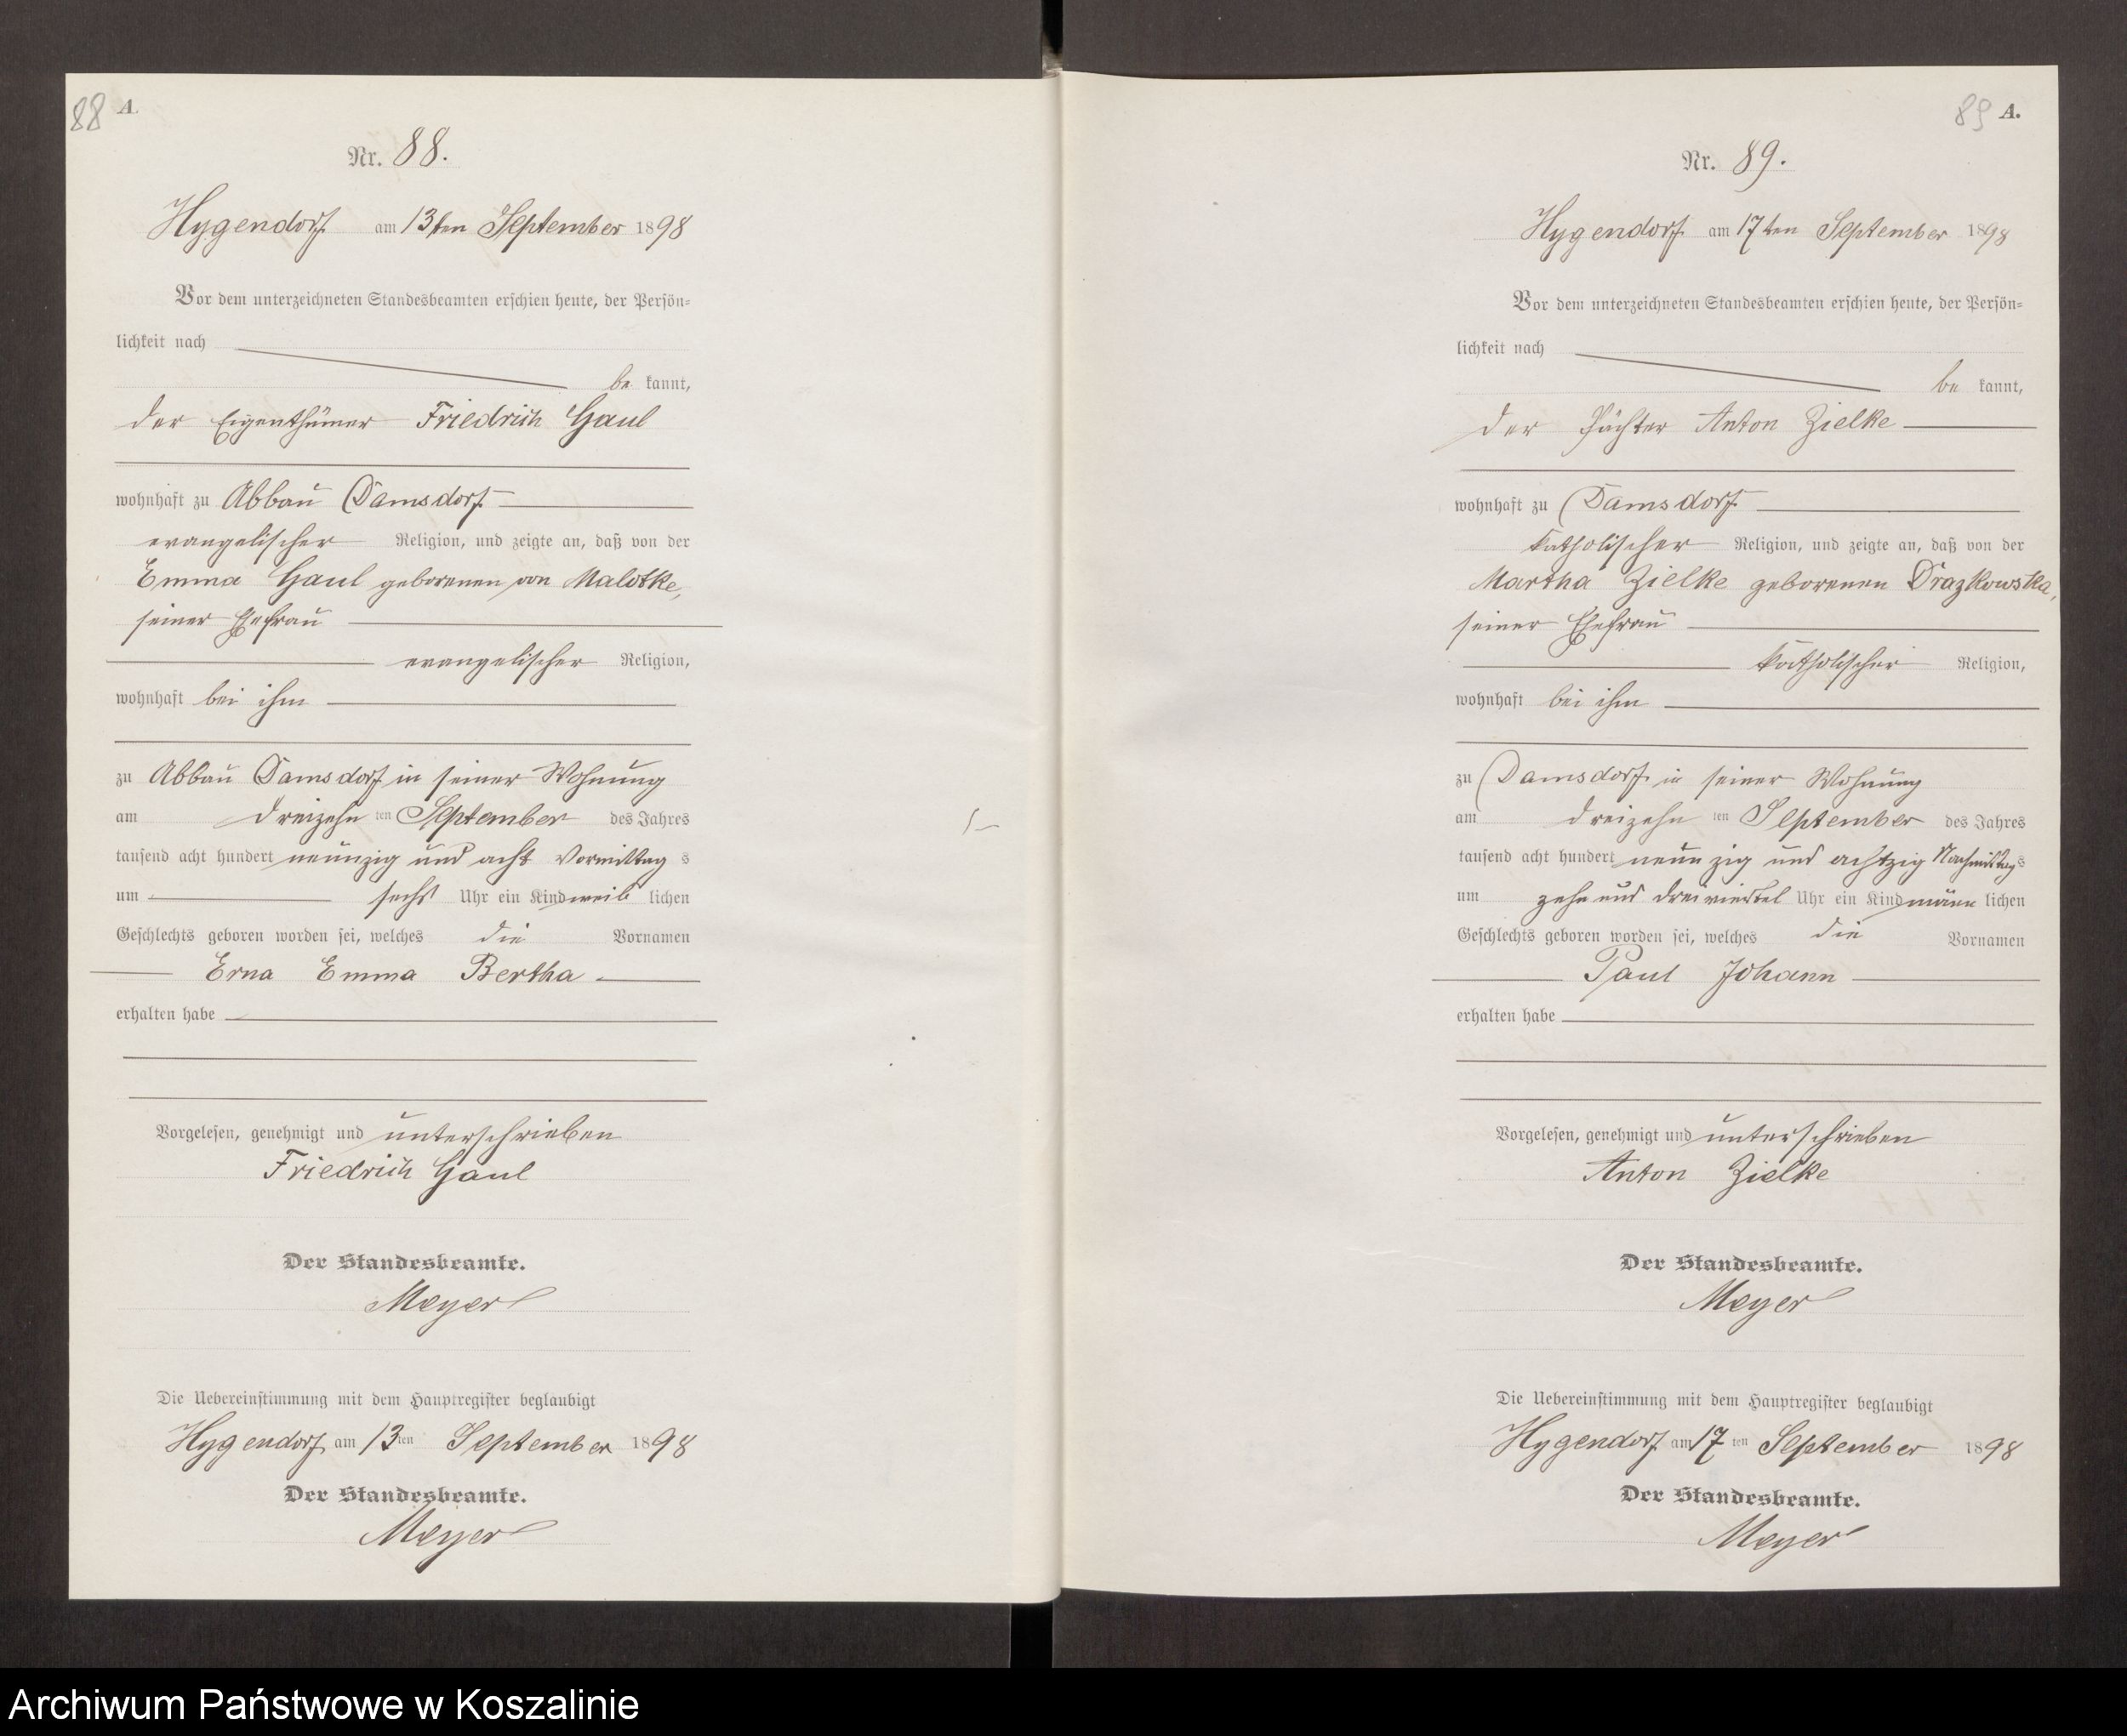 88 A.
Nr. 88.
Hygendorf am 13ten September 1898
Vor dem unterzeichneten Standesbeamten erschien heute, der Persön-
lichkeit nach
be kannt,
der Eigenthümer Friedrich Gaul
wohnhaft zu Abbau Damsdorf
evangelischer Religion, und zeigte an, daß von der
Emma Gaul geborenen von Malotke,
seiner Ehefrau
evangelischer Religion,
wohnhaft bei ihm
zu Abbau Damsdorf in seiner Wohnung
am dreizehn ten September des Jahres
tausend acht hundert neunzig und acht Vormittag s
um sechs Uhr ein Kind weib lichen
Geschlechts geboren worden sei, welches die Vornamen
Erna Emma Bertha
erhalten habe
Vorgelesen, genehmigt und unterschrieben
Friedrich Gaul
Der Standesbeamte.
Meyer
Die Uebereinstimmung mit dem Hauptregister beglaubigt
Hygendorf am 13 ten September 1898
Der Standesbeamte.
Meyer
89 A.
Nr. 89.
Hygendorf am 17ten September 1898
Vor dem unterzeichneten Standesbeamten erschien heute, der Persön-
lichkeit nach
be kannt,
der Pächter Anton Zielke
wohnhaft zu Damsdorf
katholischer Religion, und zeigte an, daß von der
Martha Zielke geborenen Drazkowska,
seiner Ehefrau
katholischer Religion,
wohnhaft bei ihm
zu Damsdorf in seiner Wohnung
am dreizehn ten September des Jahres
tausend acht hundert neunzig und achtzig Nachmittag s
um zehn und dreiviertel Uhr ein Kind männ lichen
Geschlechts geboren worden sei, welches die Vornamen
Paul Johann
erhalten habe
Vorgelesen, genehmigt und unterschrieben
Anton Zielke
Der Standesbeamte.
Meyer
Die Uebereinstimmung mit dem Hauptregister beglaubigt
Hygendorf am 17 ten September 1898
Der Standesbeamte.
Meyer
Archiwum Państwowe w Koszalinie